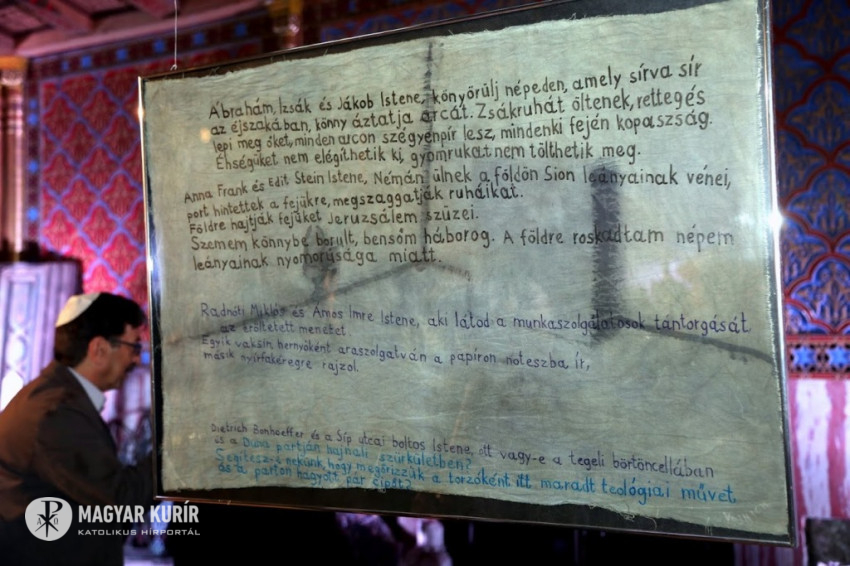 Ábrahám, Izsák és Jákob Istene, könyörülj népeden, amely sírva sír
az éjszakában, könny áztatja arcát. Zsákruhát öltenek, rettegés
lepi meg őket, minden arcon szégyenpír lesz, mindenki fején kopaszság.
Éhségüket nem elégíthetik ki, gyomrukat nem tölthetik meg.
Anna Frank és Edit Stein Istene, Némán ülnek a földön Sion leányainak vénei,
port hintettek a fejükre, megszaggatják ruháikat.
Földre hajtják fejüket Jeruzsálem szüzei.
Szemem könnybe borult, bensőm háborog. A földre roskadtam népem
leányainak nyomorúsága miatt.
Radnóti Miklós és Ámos Imre Istene, aki látod a munkaszolgálatosok tántorgását
az erőltetett menetet.
Egyik vaksin, hernyóként araszolgatván a papíron noteszba ír,
másik nyírfakéregre rajzol.
Dietrich Bonhoeffer és a Síp utcai boltos Istene, ott vagy-e a tegeli börtöncellában
és a Duna partján hajnali szürkületben?
Segítesz-e nekünk, hogy megőrizzük a torzóként itt maradt teológiai művet,
és a parton hagyott pár cipőt?
MAGYAR KURÍR
KATOLIKUS HÍRPORTÁL